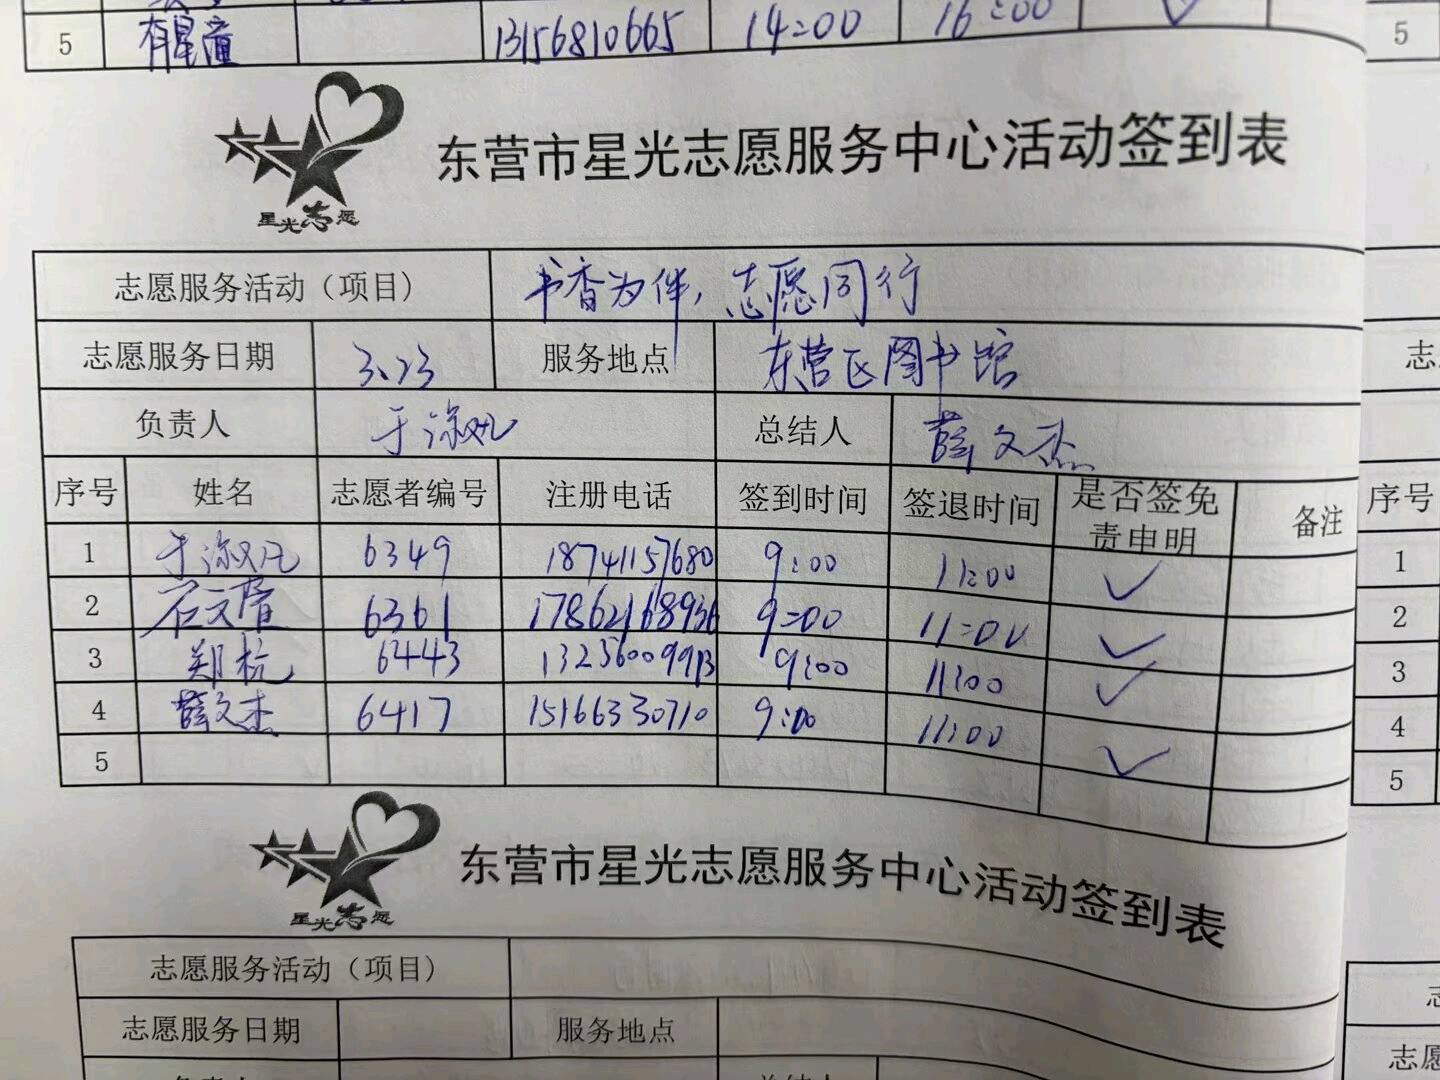 5 13156810665 14:00 16:00 ✓ 5
东营市星光志愿服务中心活动签到表
星光志愿
志愿服务活动（项目） 书香为伴，志愿同行
志愿服务日期 3.23 服务地点 东营区图书馆
负责人 于淑凡 总结人 薛文杰
序号 姓名 志愿者编号 注册电话 签到时间 签退时间 是否签免责申明 备注 序号
1 于淑凡 6349 18741157680 9:00 11:00 ✓ 1
2 6361 17862168936 9:00 11:00 ✓ 2
3 郑杭 6443 13256009913 9:00 11:00 ✓ 3
4 薛文杰 6417 15166330710 9:00 11:00 ✓ 4
5 5
东营市星光志愿服务中心活动签到表
星光志愿
志愿服务活动（项目）
志愿服务日期 服务地点